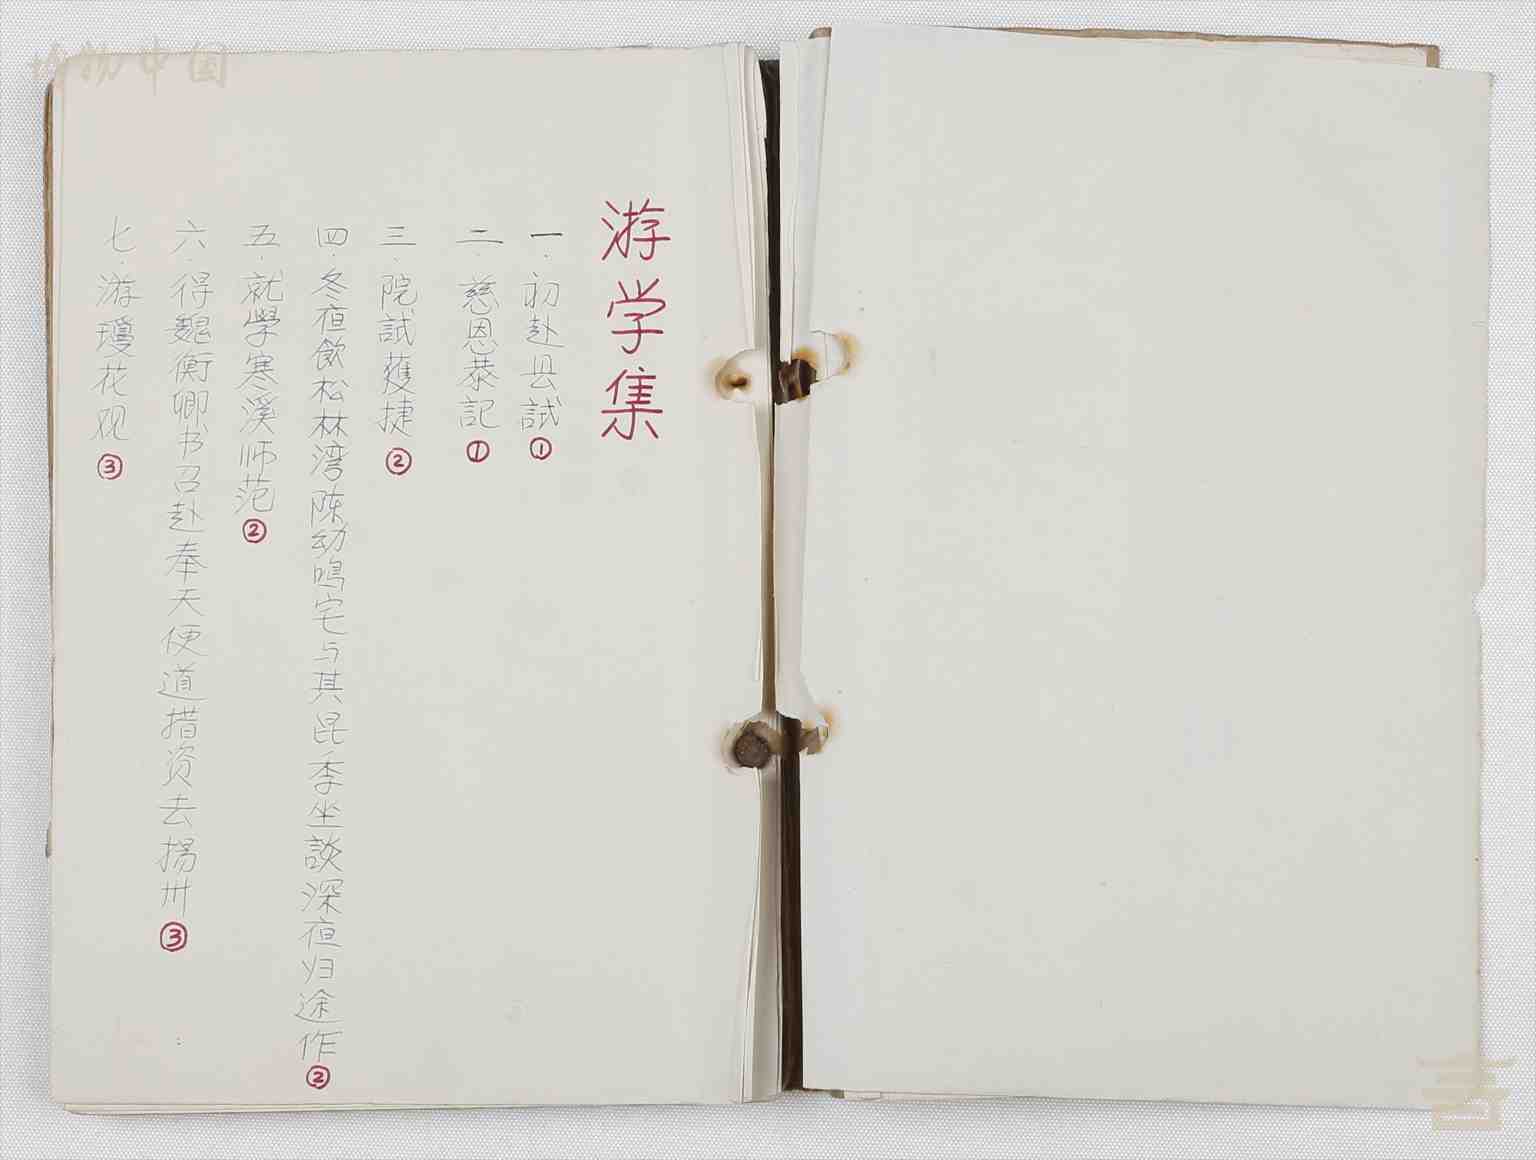 游学集
一.初赴县試①
二.慈恩恭記①
三.院試獲捷②
四.冬夜飲松林湾陈幼鸣宅与其昆季坐談深夜归途作②
五.就學寒溪师范②
六.得魏衡卿书召赴奉天便道措资去揚州③
七.游瓊花观③
博物中国